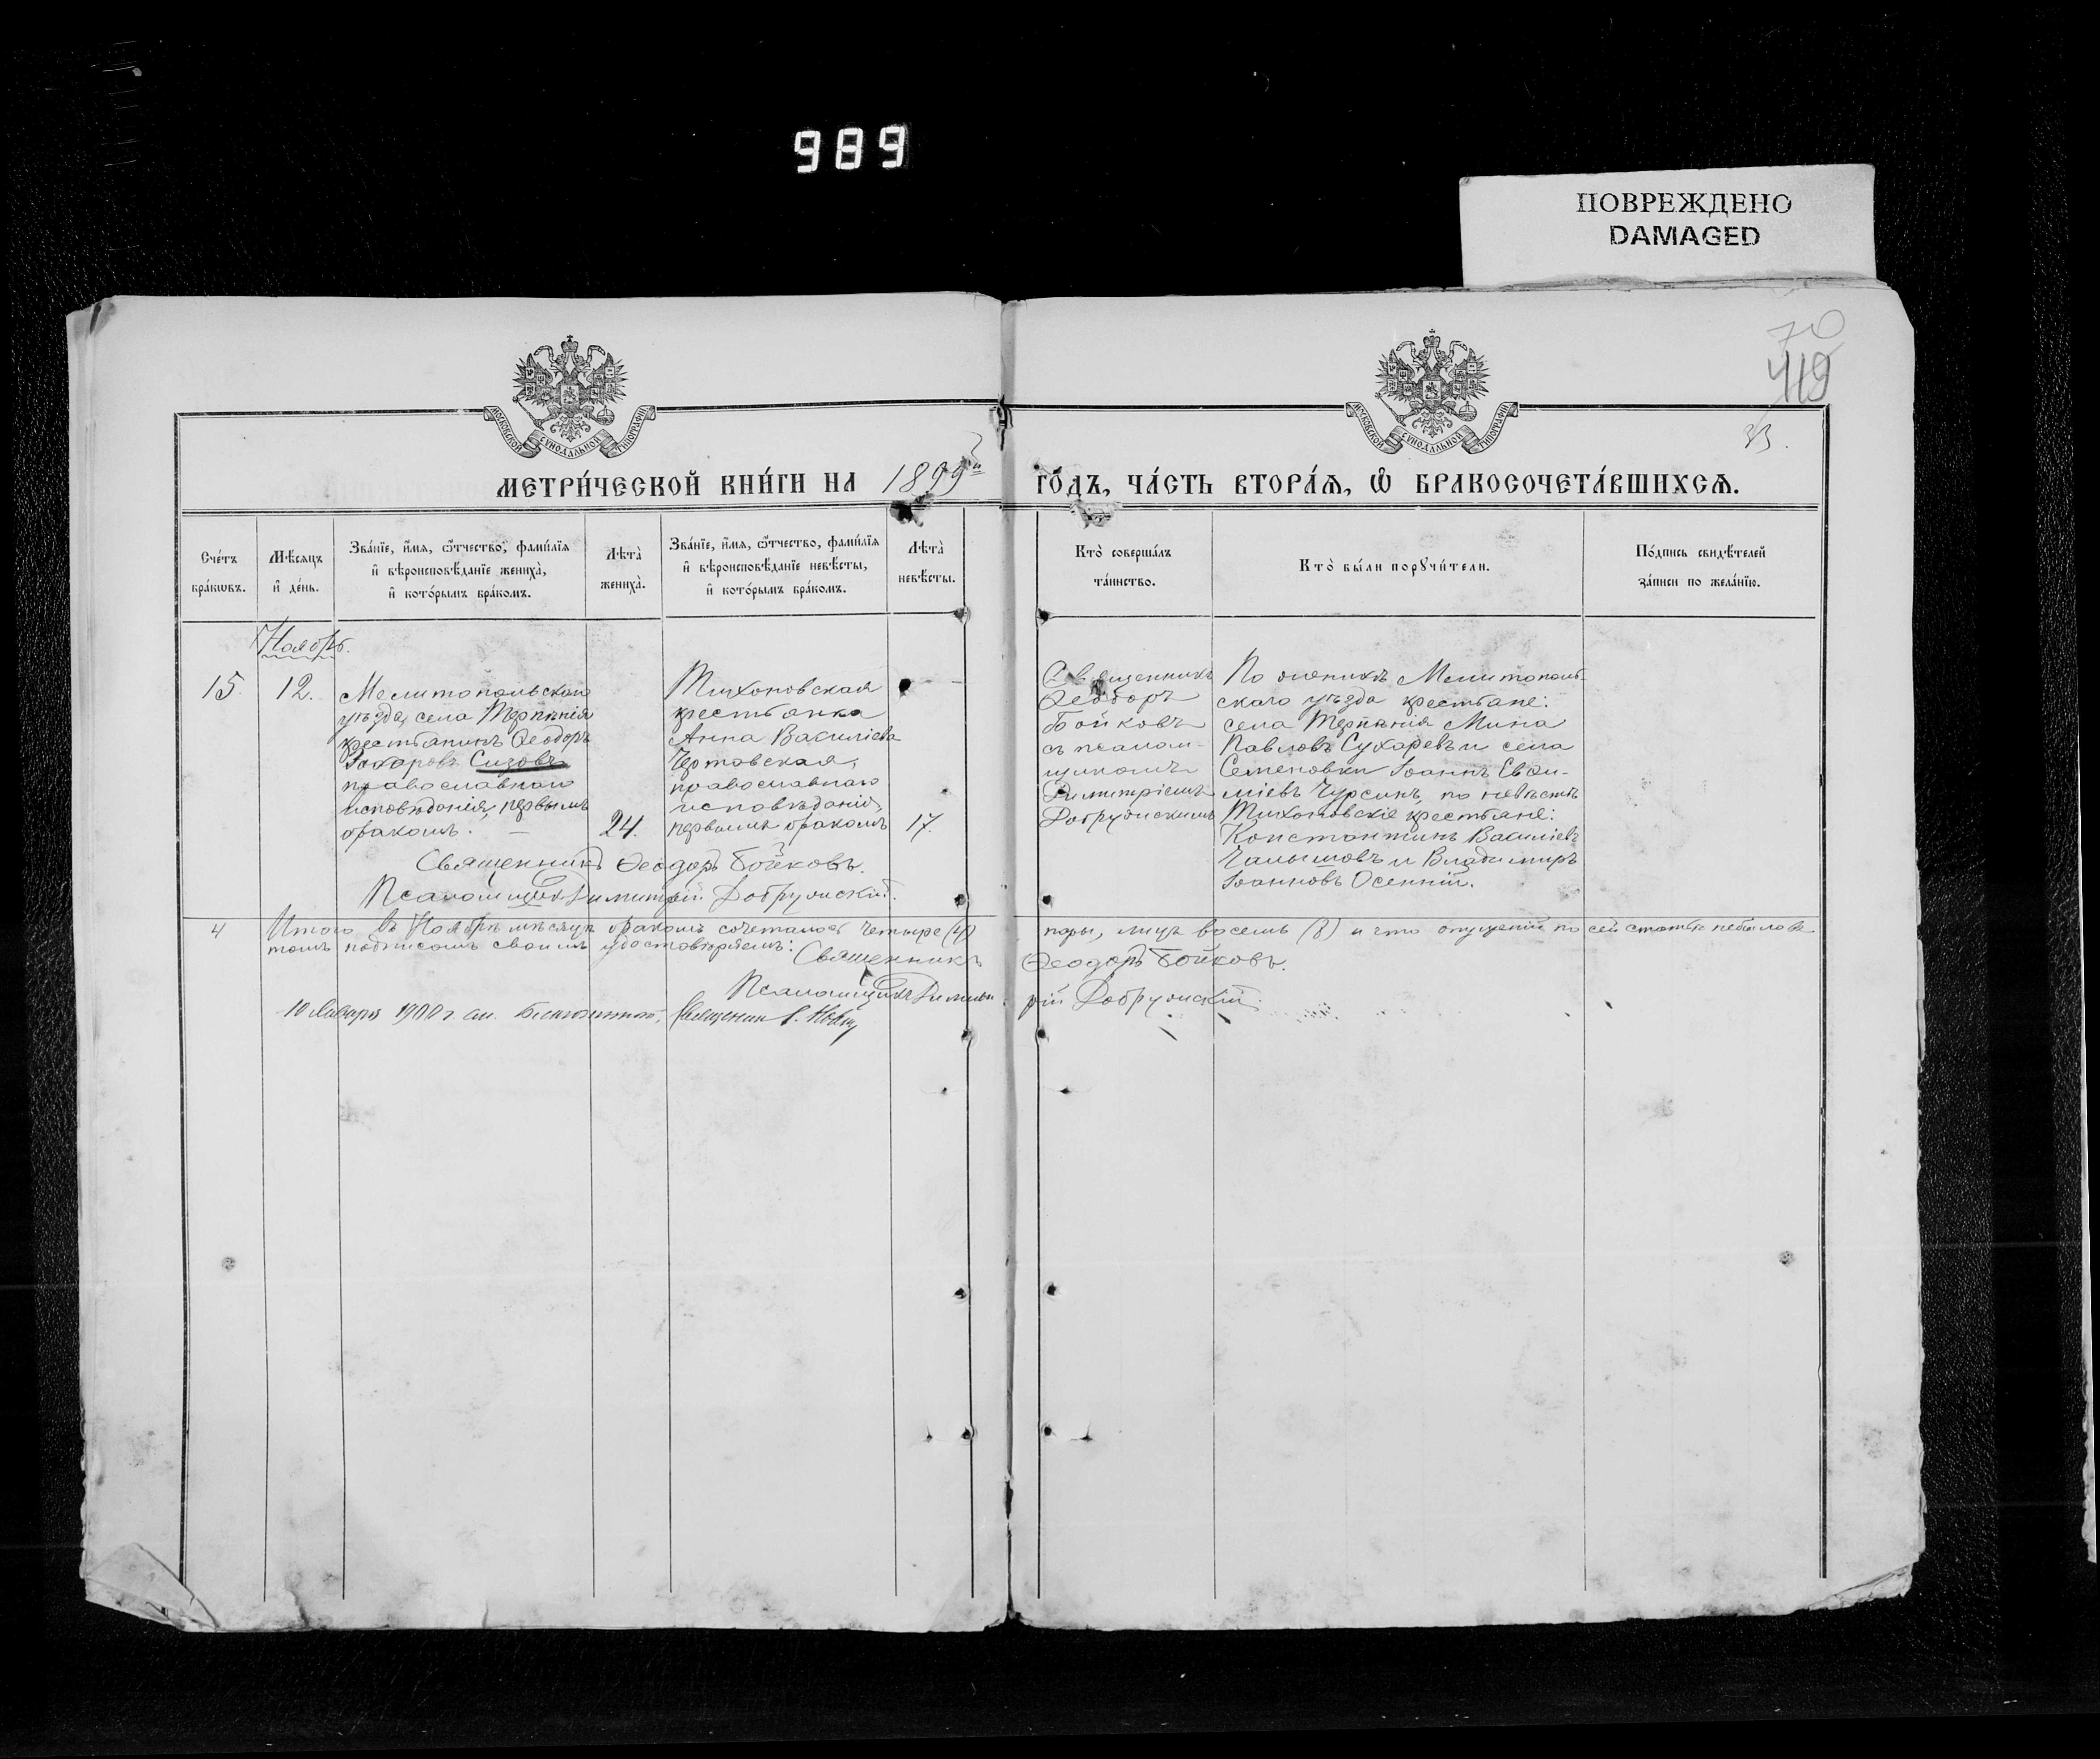 989
ПОВРЕЖДЕНО
DAMAGED
70
419
33.
МОСКОВСКОЙ СѴНОДАЛЬНОЙ ТИПОГРАФІИ
МОСКОВСКОЙ СѴНОДАЛЬНОЙ ТИПОГРАФІИ
МЕТРИ́ЧЕСКОЙ КНИ́ГИ НА 1899й ГО́ДЪ, ЧА́СТЬ ВТОРА́Ѧ, Ѽ БРАКОСОЧЕТА́ВШИХСѦ.
Сче́тъ
бра́кѡвъ.
Мѣ́сѧцъ
и҆ де́нь.
Зва́нїе, и҆́мѧ, ѻ҆́тчество, фами́лїѧ
и҆ вѣроисповѣ́данїе жениха̀,
и҆ кото́рымъ бра́комъ.
Лѣта̀
жениха̀.
Зва́нїе, и҆́мѧ, ѻ҆́тчество, фами́лїѧ
и҆ вѣроисповѣ́данїе невѣ́сты,
и҆ кото́рымъ бра́комъ.
Лѣта̀
невѣ́сты.
Кто̀ соверша́лъ
та́инство.
Кто̀ бы́ли порꙋчи́тели.
По́дпись свидѣ́телей
за́писи по жела́нїю.
Ноябрь.
15.
12.
Мелитопольскаго
уѣзда, села Терпѣнія
крестьянинъ Ѳеодоръ
Захаровъ Сизовъ
православнаго
исповѣданія, первымъ
бракомъ. —
24.
Тихоновская
крестьянка
Анна Васильева
Чертовская,
православнаго
исповѣданія,
первымъ бракомъ
17.
Священникъ
Ѳеодоръ
Бойковъ
съ псалом-
щикомъ
Димитріемъ
Добрунскимъ
По женихѣ Мелитополь-
скаго уѣзда крестьяне:
села Терпѣнія Мина
Павловъ Сухаревъ и села
Семеновки Іоаннъ Евѳи-
міевъ Чурсинъ, по невѣстѣ
Тихоновскіе крестьяне:
Константинъ Васильевъ
и Владимиръ
Іоанновъ Осенній.
Священникъ Ѳеодоръ Бойковъ.
Псаломщикъ Димитрій Добрунскій.
4
Итого въ Ноябрѣ мѣсяцѣ бракомъ сочеталось четыре (4) пары, лицъ восемь (8) и что опущеній по сей статьѣ небыло въ
томъ подписомъ своимъ удостовѣряемъ: Священникъ Ѳеодоръ Бойковъ.
Псаломщикъ Димитрій Добрунскій.
10 Января 1900 г. Благочинный, Священникъ